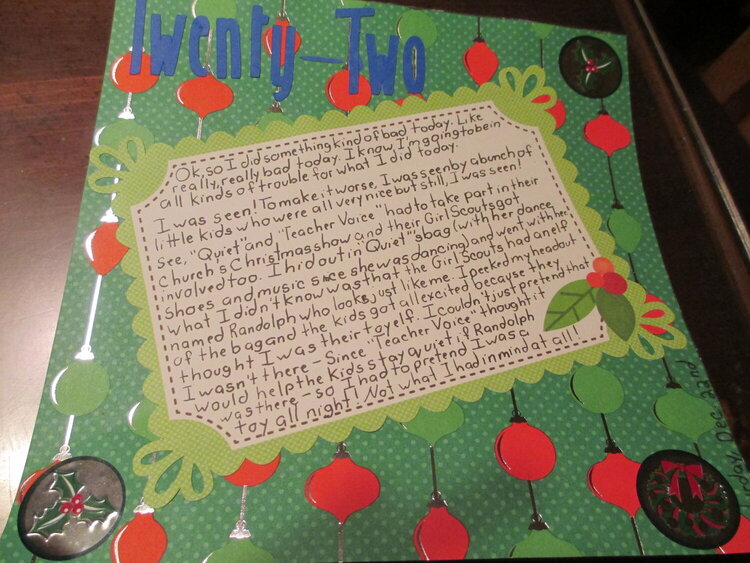 Twenty-Two
Ok, so I did something kind of bad today. Like
really, really bad today. I know, I'm going to be in
all kinds of trouble for what I did today.
I was seen! To make it worse, I was seen by a bunch of
little kids who were all very nice but still, I was seen!
See, "Quiet" and "Teacher Voice" had to take part in their
Church's Christmas show and their Girl Scouts got
involved too. I hid out in "Quiet"'s bag (with her dance
shoes and music since she was dancing) and went with her.
What I didn't know was that the Girl Scouts had an elf
named Randolph who looks just like me. I peeked my head out
of the bag and the kids got all excited because they
thought I was their toy elf. I couldn't just pretend that
I wasn't there - Since "Teacher Voice" thought it
would help the kids stay quiet if Randolph
was there - so I had to pretend I was a
toy all night! Not what I had in mind at all!
Dec. 22nd